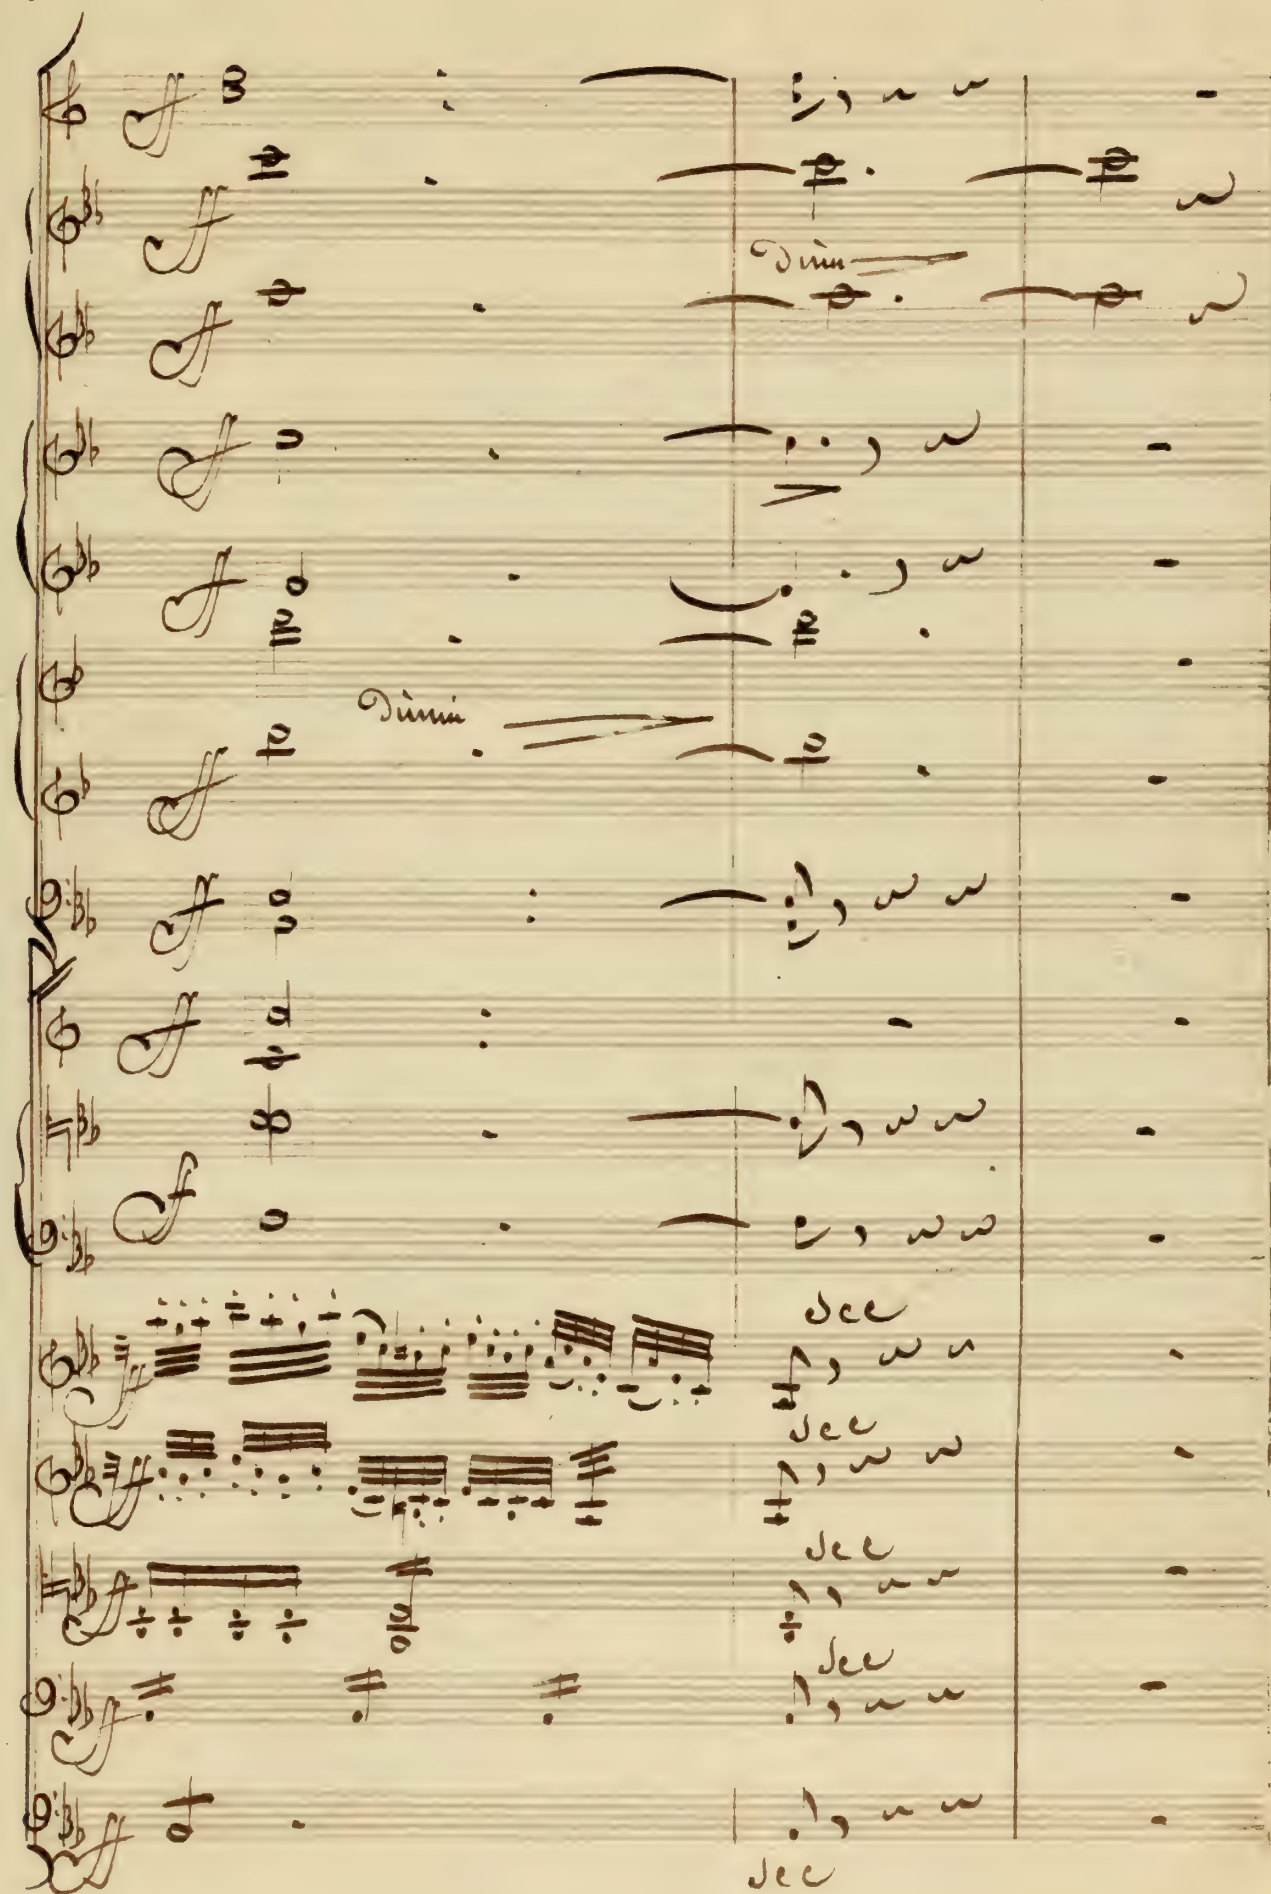 ff
ff
Dim
ff
ff
ff
Dimin
ff
ff
ff
f
sec
ff
sec
ff
sec
ff
sec
ff
ff
sec